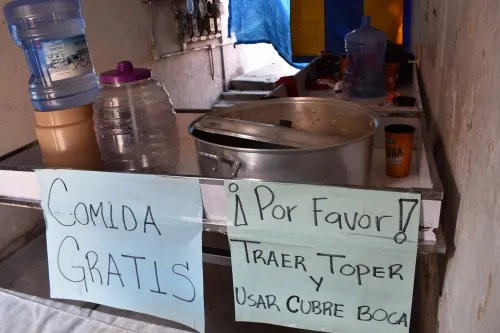 COMIDA
GRATIS
¡Por Favor!
TRAER TOPER
Y
USAR CUBRE BOCA